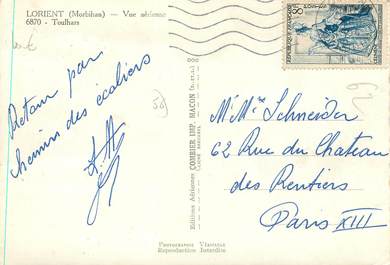 LORIENT (Morbihan) — Vue aérienne
6870 - Toulhars
Retour par
chemin des écoliers
Editions Aériennes COMBIER IMP. MACON
REPUBLIQUE FRANÇAISE
POSTES
8F
M. Mme Schneider
62 Rue du Chateau
des Rentiers
Paris XIII
Reproduction Interdite